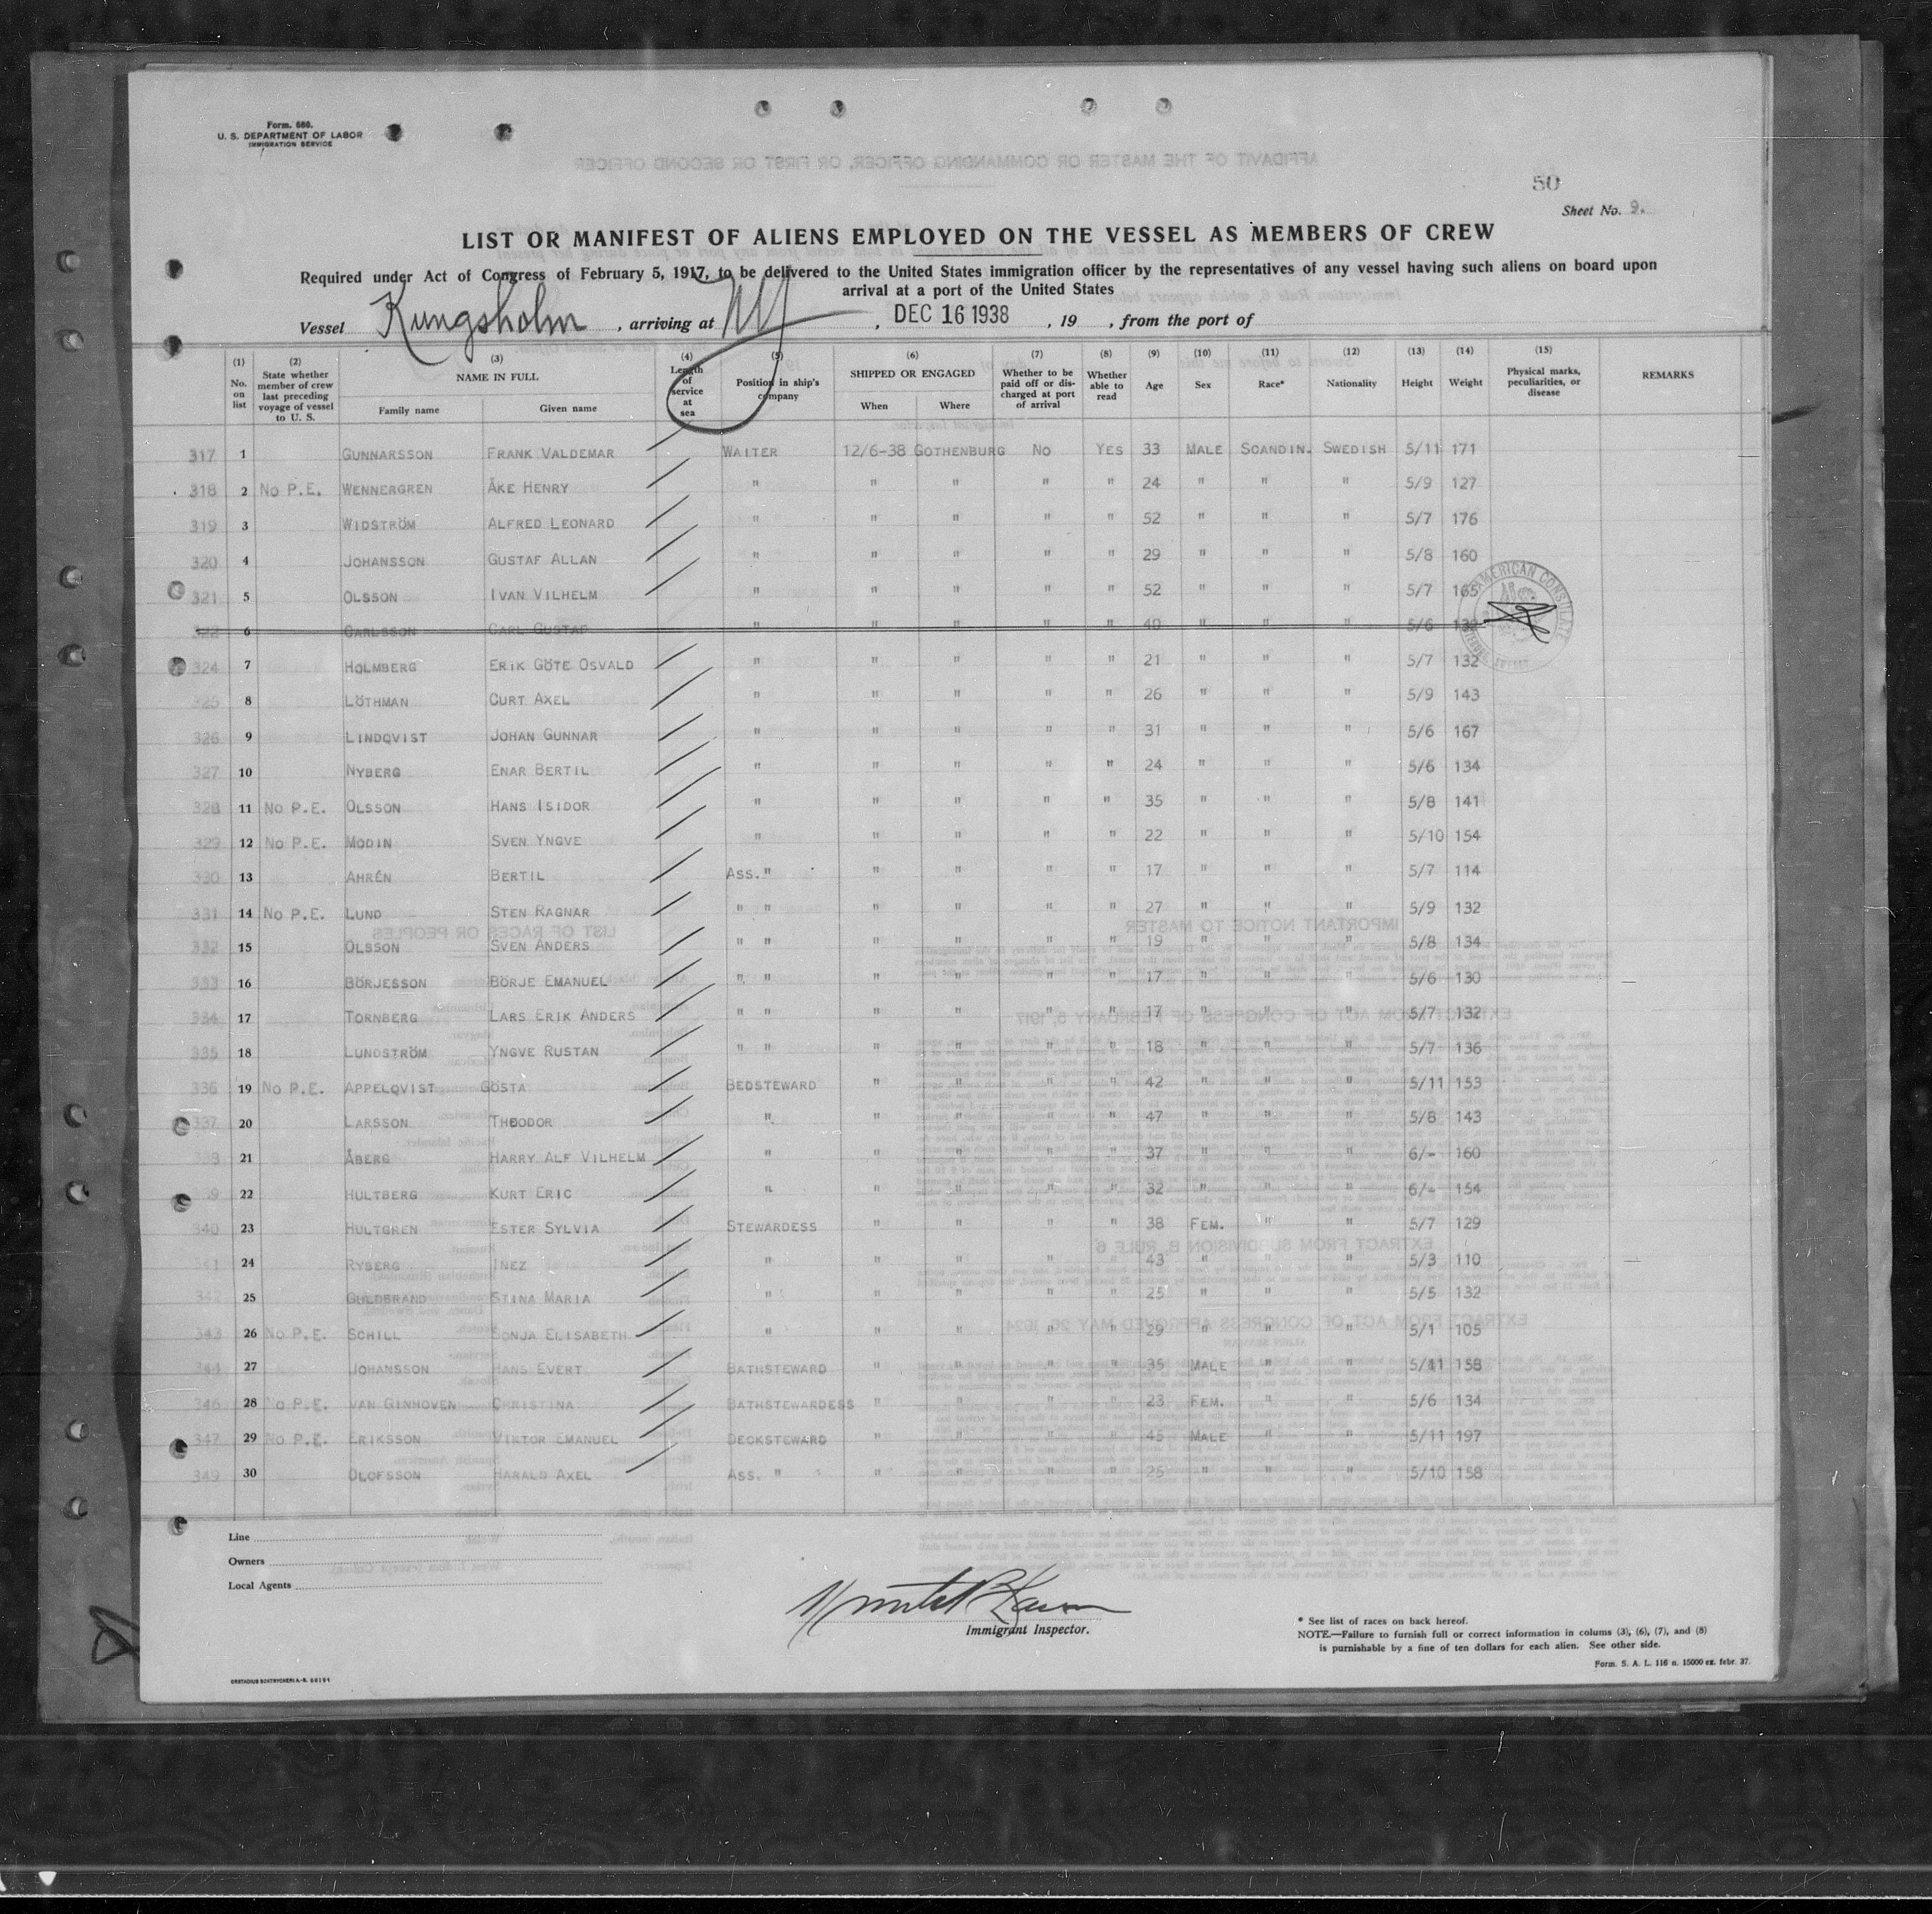 Form. 680.
U. S. DEPARTMENT OF LABOR
IMMIGRATION SERVICE
50
Sheet No. 9.
LIST OR MANIFEST OF ALIENS EMPLOYED ON THE VESSEL AS MEMBERS OF CREW
Required under Act of Congress of February 5, 1917, to be delivered to the United States immigration officer by the representatives of any vessel having such aliens on board upon
arrival at a port of the United States
Vessel Kungsholm, arriving at NY, DEC 16 1938, 19 , from the port of
(1) No. on list (2) State whether member of crew last preceding voyage of vessel to U. S. (3) NAME IN FULL Family name Given name (4) Length of service at sea (5) Position in ship's company (6) SHIPPED OR ENGAGED When Where (7) Whether to be paid off or discharged at port of arrival (8) Whether able to read (9) Age (10) Sex (11) Race* (12) Nationality (13) Height (14) Weight (15) Physical marks, peculiarities, or disease REMARKS
317 1 GUNNARSSON FRANK VALDEMAR WAITER 12/6-38 GOTHENBURG NO YES 33 MALE SCANDIN. SWEDISH 5/11 171
318 2 NO P.E. WENNERGREN ÅKE HENRY " " " " " 24 " " " 5/9 127
319 3 WIDSTRÖM ALFRED LEONARD " " " " " 52 " " " 5/7 176
320 4 JOHANSSON GUSTAF ALLAN " " " " " 29 " " " 5/8 160
321 5 OLSSON IVAN VILHELM " " " " " 52 " " " 5/7 165
322 6 CARLSSON CARL GUSTAF " " " " " 40 " " " 5/6 132
324 7 HOLMBERG ERIK GÖTE OSVALD " " " " " 21 " " " 5/7 132
325 8 LÖTHMAN CURT AXEL " " " " " 26 " " " 5/9 143
326 9 LINDQVIST JOHAN GUNNAR " " " " " 31 " " " 5/6 167
327 10 NYBERG ENAR BERTIL " " " " " 24 " " " 5/6 134
328 11 NO P.E. OLSSON HANS ISIDOR " " " " " 35 " " " 5/8 141
329 12 NO P.E. MODIN SVEN YNGVE " " " " " 22 " " " 5/10 154
330 13 AHRÉN BERTIL ASS. " " " " " 17 " " " 5/7 114
331 14 NO P.E. LUND STEN RAGNAR " " " " " " 27 " " " 5/9 132
332 15 OLSSON SVEN ANDERS " " " " " " 19 " " " 5/8 134
333 16 BÖRJESSON BÖRJE EMANUEL " " " " " " 17 " " " 5/6 130
334 17 TORNBERG LARS ERIK ANDERS " " " " " " 17 " " " 5/7 132
335 18 LUNDSTRÖM YNGVE RUSTAN " " " " " " 18 " " " 5/7 136
336 19 NO P.E. APPELQVIST GÖSTA BEDSTEWARD " " " " 42 " " " 5/11 153
337 20 LARSSON THEODOR " " " " " 47 " " " 5/8 143
21 ÅBERG HARRY ALF VILHELM " " " " " 37 " " " 6/- 160
22 HULTBERG KURT ERIC " " " " " 32 " " " 6/- 154
340 23 HULTGREN ESTER SYLVIA STEWARDESS " " " " 38 FEM. " " 5/7 129
341 24 RYBERG INEZ " " " " " 43 " " " 5/3 110
342 25 GULDBRAND STINA MARIA " " " " " 25 " " " 5/5 132
343 26 NO P.E. SCHILL SONJA ELISABETH " " " " " 29 " " " 5/1 105
344 27 JOHANSSON HANS EVERT BATHSTEWARD " " " " 35 MALE " " 5/11 158
346 28 NO P.E. VAN GINHOVEN CHRISTINA BATHSTEWARDESS " " " " 23 FEM. " " 5/6 134
347 29 NO P.E. ERIKSSON VIKTOR EMANUEL DECKSTEWARD " " " " 45 MALE " " 5/11 197
349 30 OLOFSSON HARALD AXEL ASS. " " " " " 25 " " " 5/10 158
AMERICAN CONSULATE
Line
Owners
Local Agents
Immigrant Inspector.
* See list of races on back hereof.
NOTE.—Failure to furnish full or correct information in colums (3), (6), (7), and (8)
is purnishable by a fine of ten dollars for each alien. See other side.
Form. S. A. L. 116 n. 15000 ex. febr. 37.